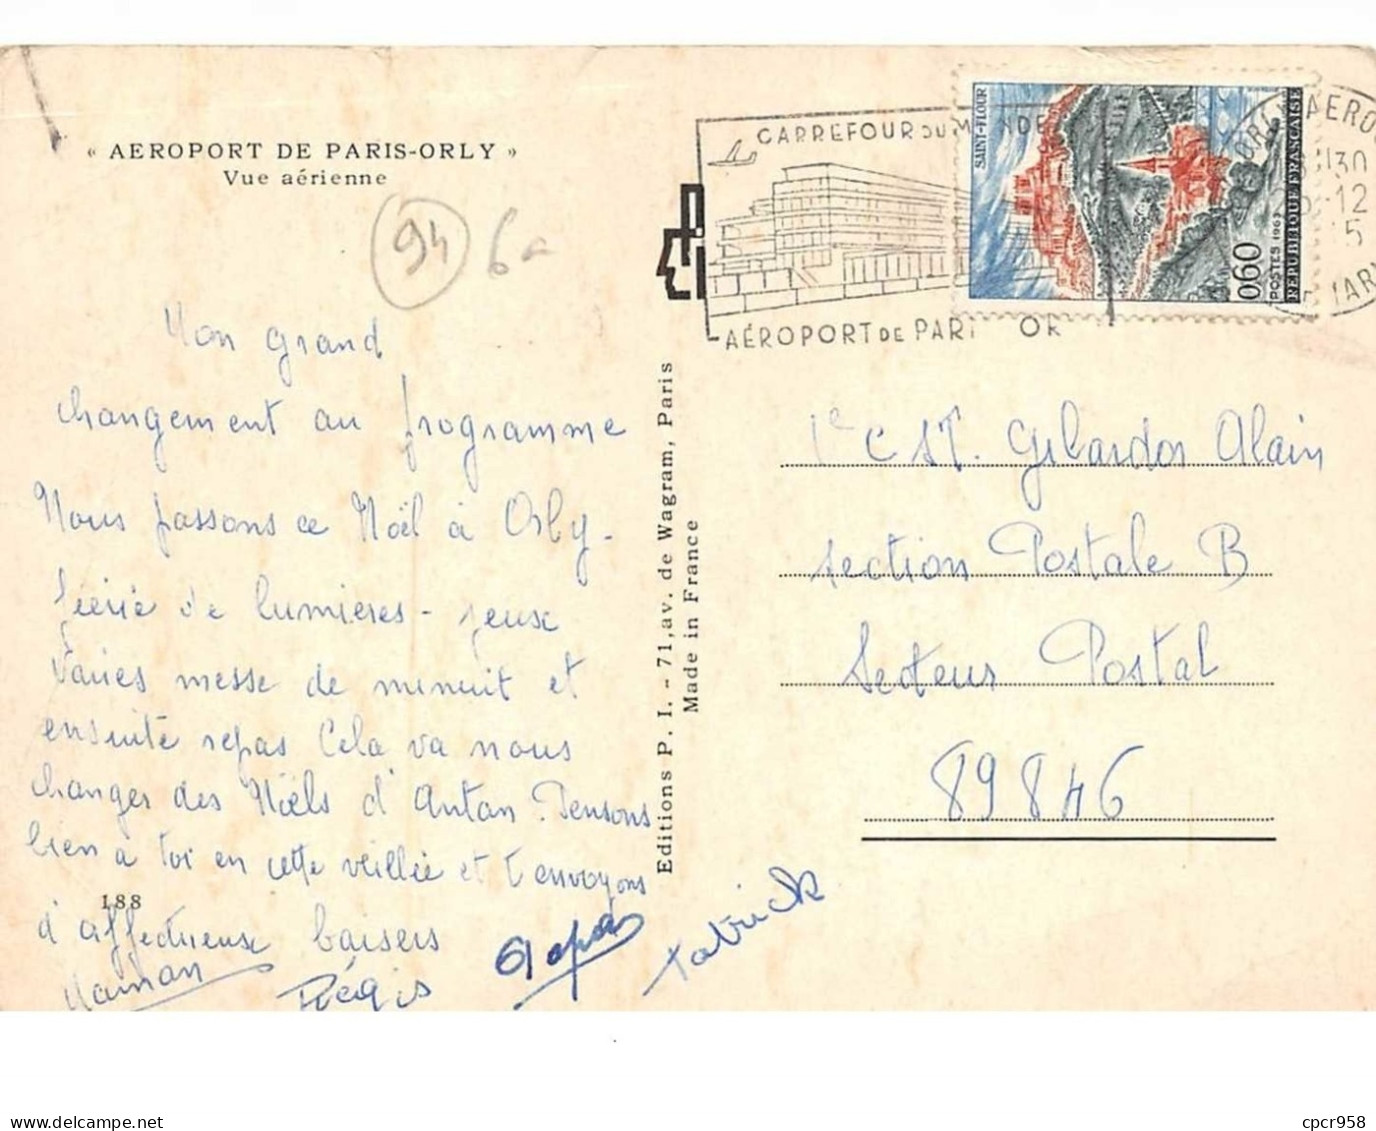 « AEROPORT DE PARIS-ORLY »
Vue aérienne
94 6
Mon grand
changement au programme
Nous passons ce Noël à Orly.
féerie de lumières - jeux
variés messe de minuit et
ensuite repas Cela va nous
changer des Noëls d'Antan. Pensons
bien à toi en cette veillée et t'envoyons
d'affectueux baisers
188
Maman Régis Papa Patrick
Editions P. I. - 71, av. de Wagram, Paris
Made in France
CARREFOUR DU MONDE
AÉROPORT DE PARI OR
SAINT-FLOUR
0,60
POSTES 1967
REPUBLIQUE FRANÇAISE
ORLY AERO
30
12
5
MAR
1e C ST. Gilardos Alain
Section Postale B
Secteur Postal
89846
cpcr958